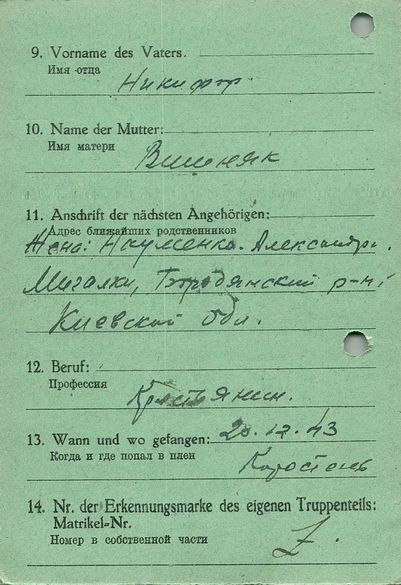 9. Vorname des Vaters.
Имя отца
Никифор.
10. Name der Mutter:
Имя матери
Вишняк
11. Anschrift der nächsten Angehörigen:
Адрес ближайших родственников
Жена: Науменко Александра.
Мигалки, Бородянский р-н
Киевской обл.
12. Beruf:
Профессия
Крестьянин.
13. Wann und wo gefangen: 20.12.43
Когда и где попал в плен
Коростень
14. Nr. der Erkennungsmarke des eigenen Truppenteils:
Matrikel-Nr.
Номер в собственной части
Z.